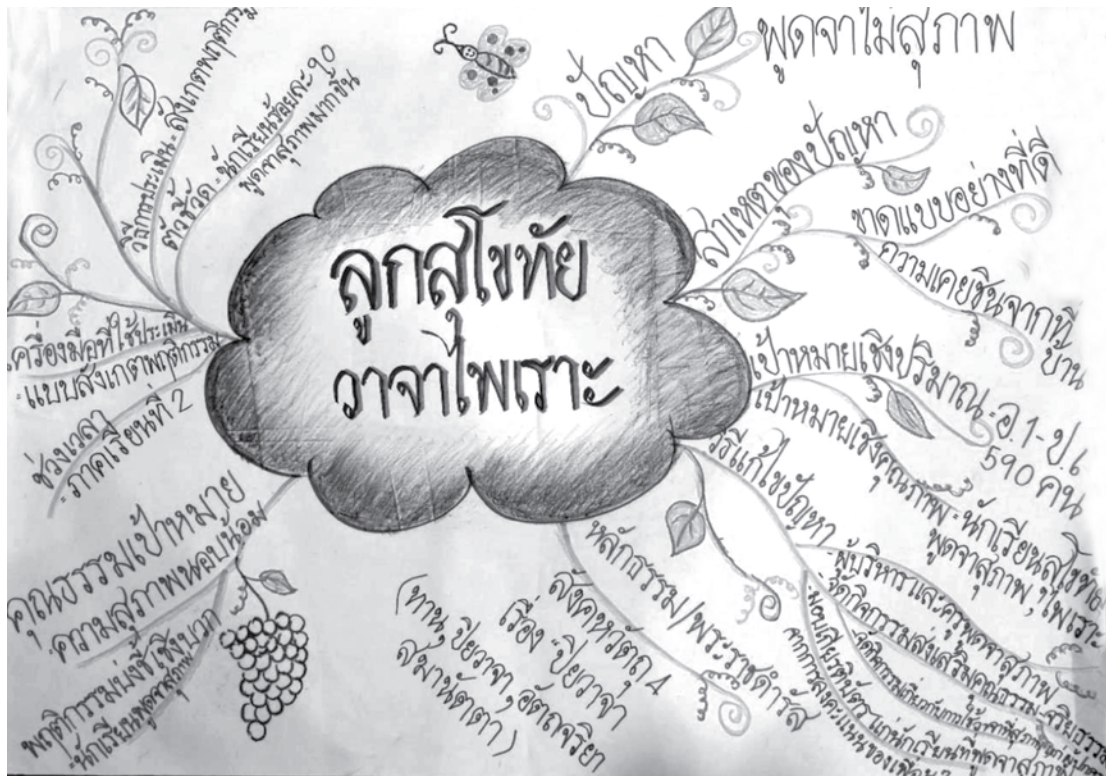 ลูกสุโขทัย
วาจาไพเราะ
ปัญหา
พูดจาไม่สุภาพ
สาเหตุของปัญหา
ขาดแบบอย่างที่ดี
ความเคยชินจากที่
บ้าน
เป้าหมายเชิงปริมาณ - อ.1-ป.6
590 คน
เป้าหมายเชิงคุณภาพ - นักเรียนสุโขทัย
พูดจาสุภาพ, ไพเราะ
วิธีแก้ไขปัญหา
- ผู้บริหารและครูพูดจาสุภาพ
จัดกิจกรรมส่งเสริมคุณธรรม จริยธรรม
- มอบเกียรติบัตรแก่นักเรียนที่พูดจาสุภาพ
หลักธรรม/พระราชดำรัส
สังคหวัตถุ 4
เรื่อง "ปิยวาจา
(ทาน, ปิยวาจา, อัตถจริยา
สมานัตตา)
คุณธรรมเป้าหมาย
- ความสุภาพนอบน้อม
พฤติกรรมบ่งชี้เชิงบวก
- นักเรียนพูดจาสุภาพ
ช่วงเวลา
- ภาคเรียนที่ 2
เครื่องมือที่ใช้ประเมิน
- แบบสังเกตพฤติกรรม
วิธีการประเมิน - สังเกตพฤติกรรม
ตัวชี้วัด - นักเรียนร้อยละ 90
พูดจาสุภาพมากขึ้น